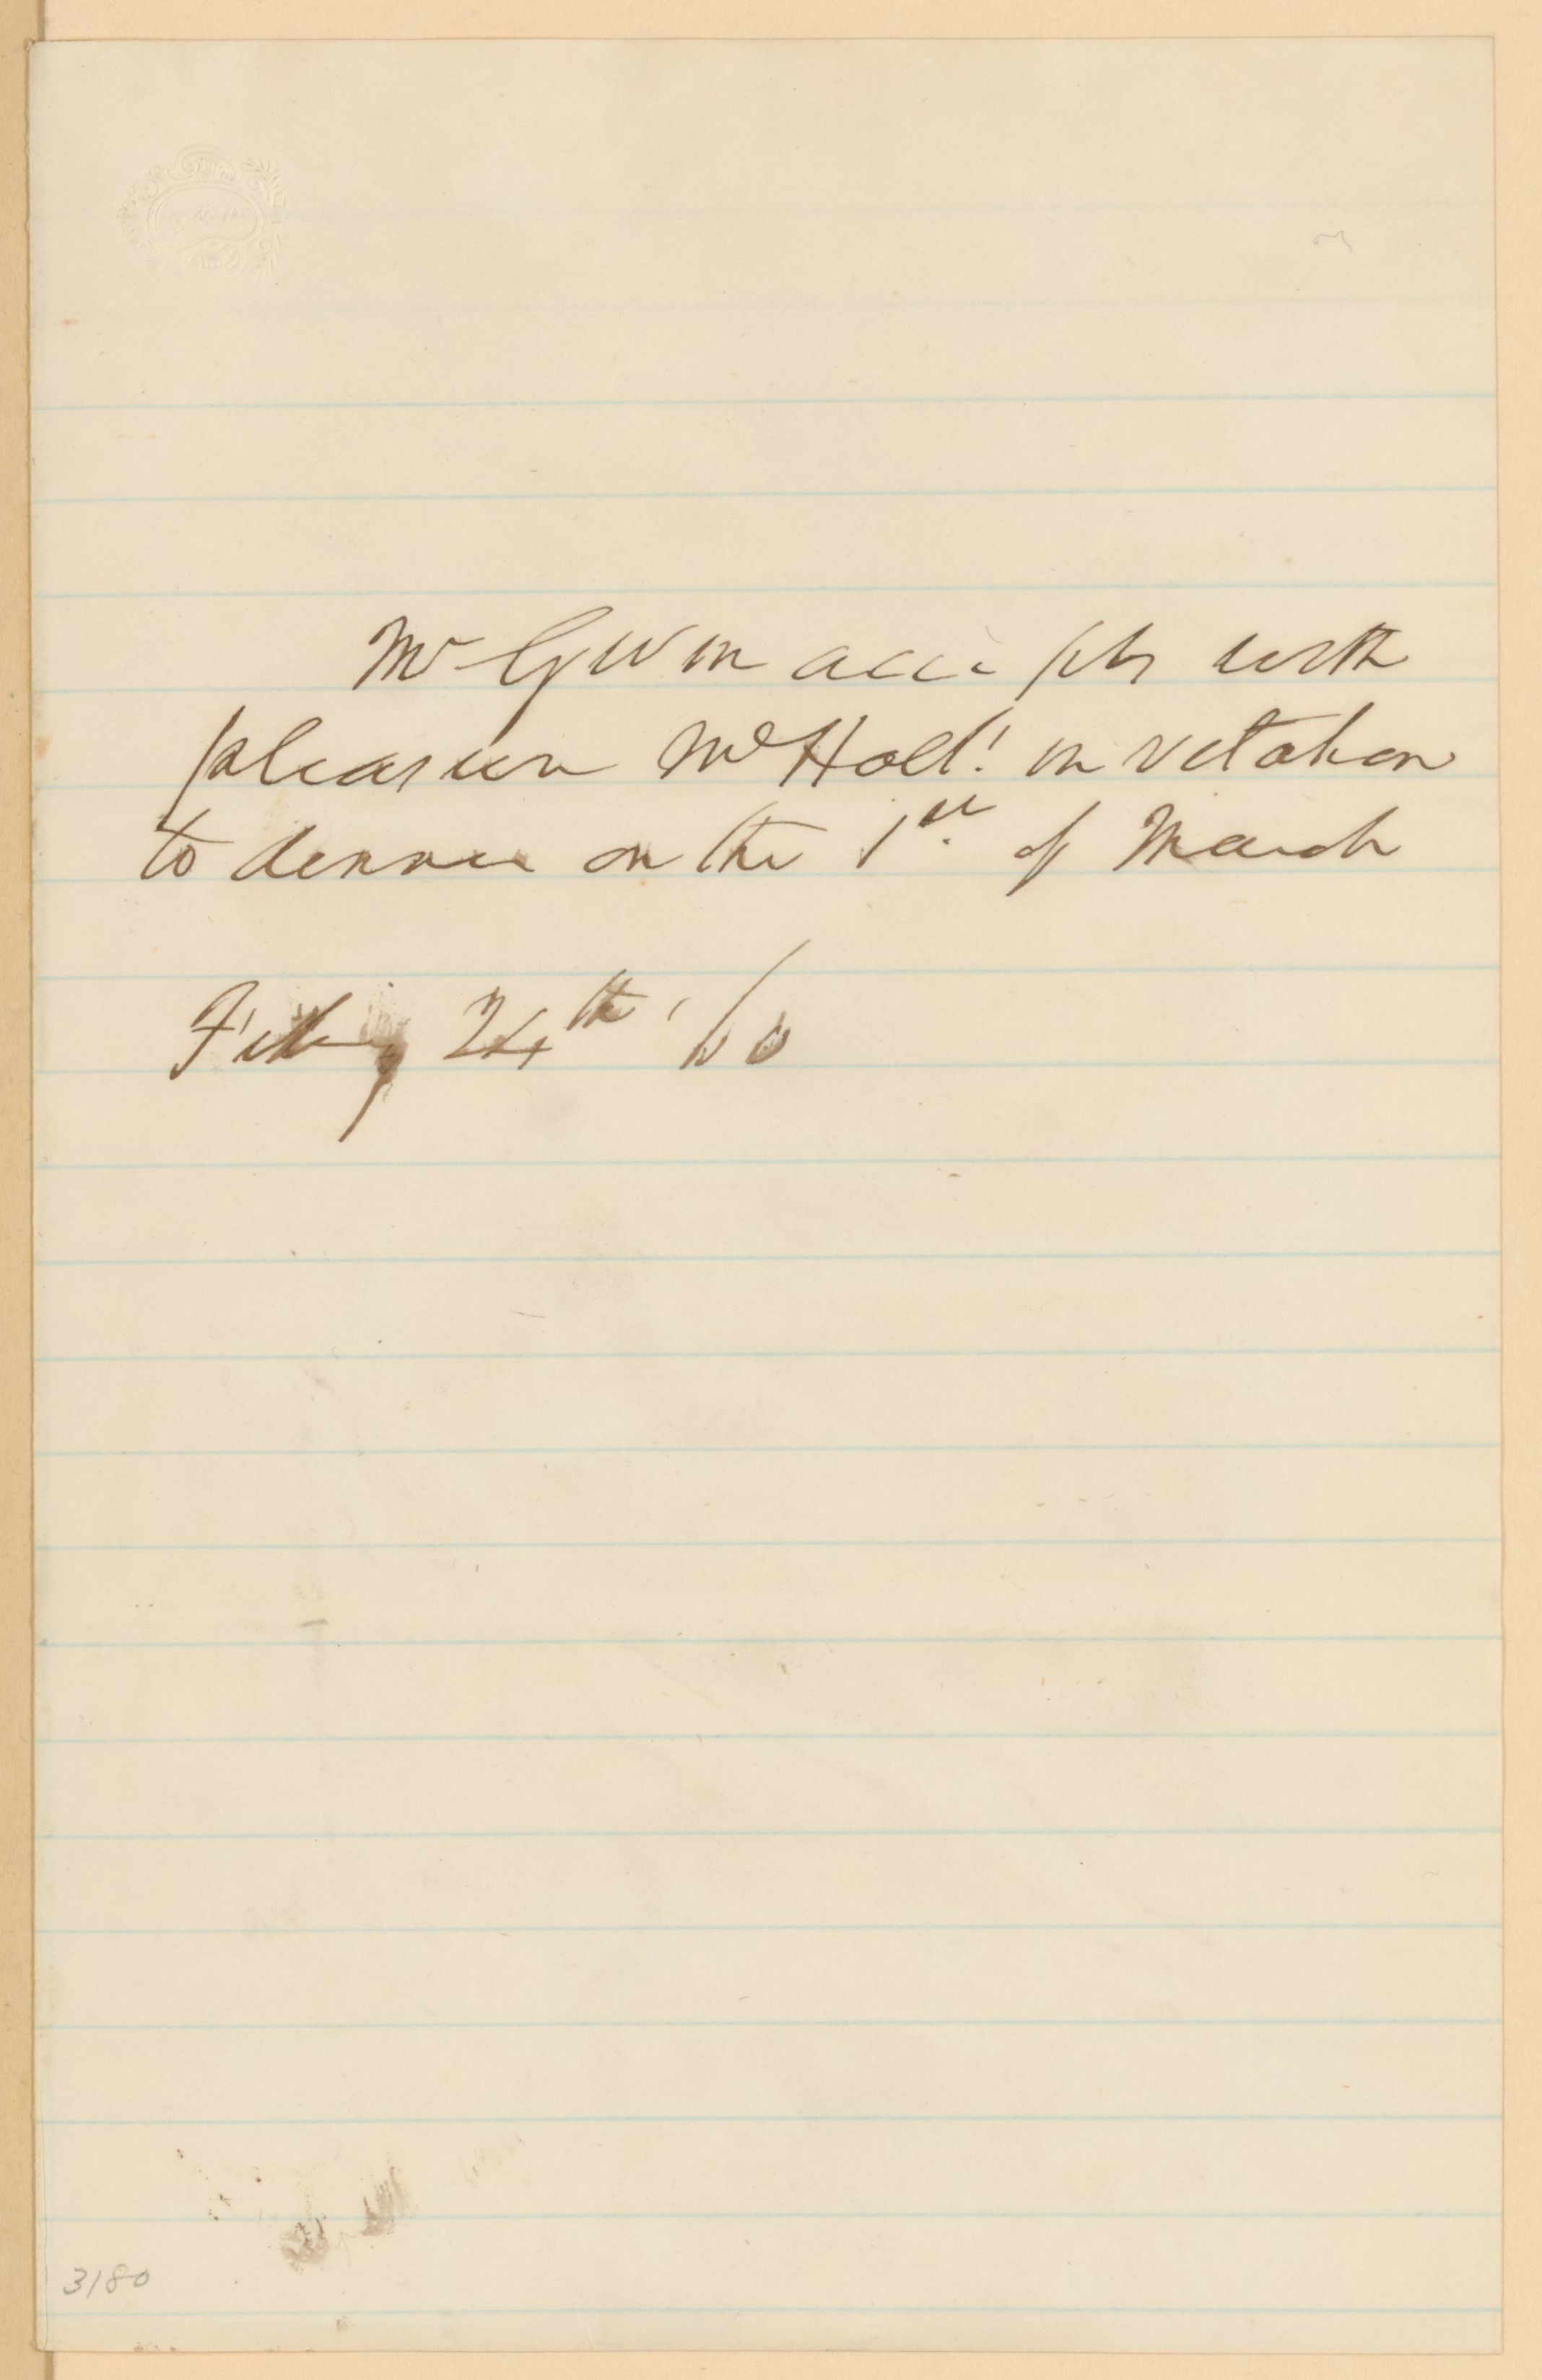 Mr Gwin accepts with
pleasure Mr Holt's invitation
to dinner on the 1st. of March
Feby 24th '60
3180